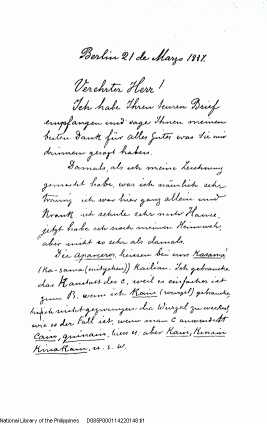 Berlin 21 de Marzo 1887.
Verehrter Herr!
Ich habe Ihren teuren Brief
empfangen und sage Ihnen meinen
besten Dank für alles Gutes was Sie mir
drinnen gesagt haben.
Damals, als ich meine Zeichnung
gemacht habe, war ich nämlich sehr
traurig ich war hier ganz allein und
Krank ich sehnte sehr nach Hause,
jetzt habe ich noch meinen Heimweh,
aber nicht so sehr als damals.
Die Aparcero, heissen bei uns Kasamá
(Ka-sama (mitgehen)) Kailian. Ich gebrauche
das K anstatt des C, weil es einfacher ist
zum B. wenn ich Kain (wurzel) gebrauche,
bin ich nicht gezwungen die Wurzel zu wechseln
wie es der Fall ist, wenn man C anwendet
Cain, quinain, hier es aber Kain, Kinain
Kinakain, u. s. w.
National Library of the Philippines D08SP00011422014881